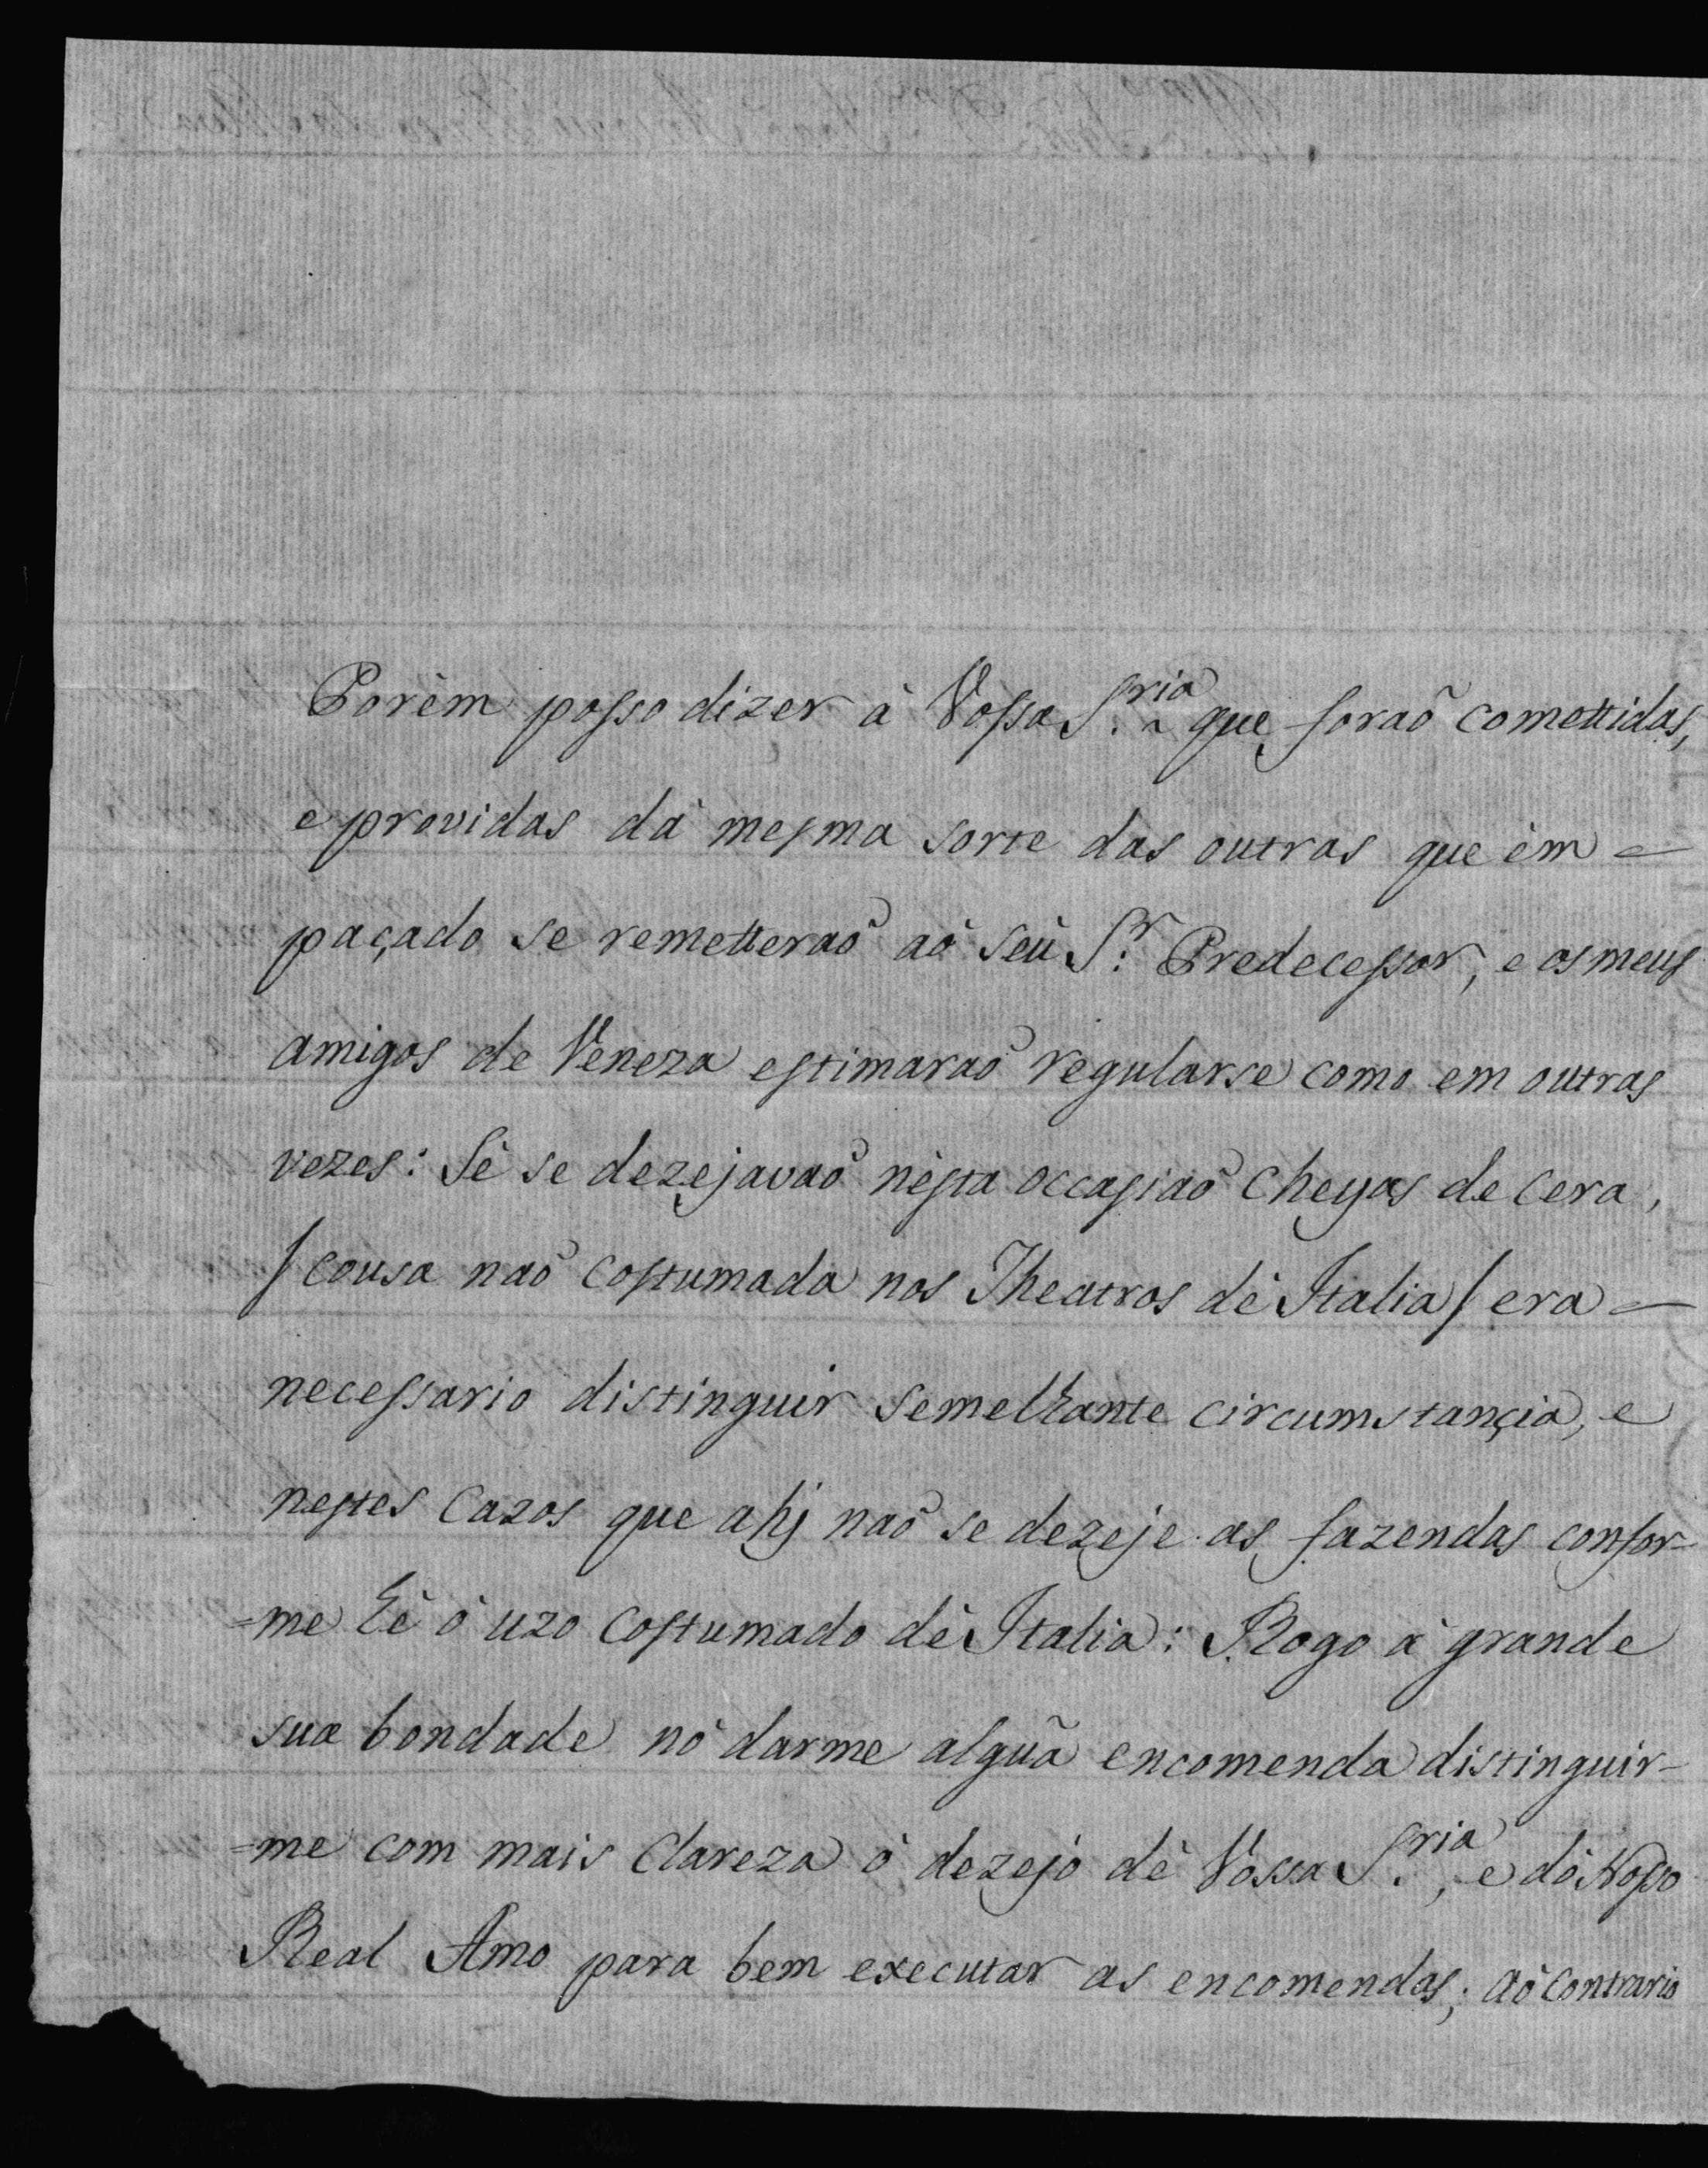 Porèm posso dizer à Vossa S.ria que foraõ comettidas,
e providas dà mesma sorte das outras que èm =
paçado se remetteraõ aò seù S.r Predecessor, e os meus
amigos de Veneza estimaraõ regularse como em outras
vezes: Sè se dezejavaõ nèsta occasiaõ cheyas de cera,
/ cousa naõ costumada nos Theatros dè Italia / era =
necessario distinguir semelhante circumstançia, e
nestes cazos que ahj naõ se dezeje as fazendas confor-
=me hè ò uzo costumado dè Italia: Rogo à grande
sua bondade nò darme algũa encomenda distinguir-
=me com mais clareza ò dezejo dè Vossa S.ria, e dò Nosso
Real Amo para bem executar as encomendas; aò contrario